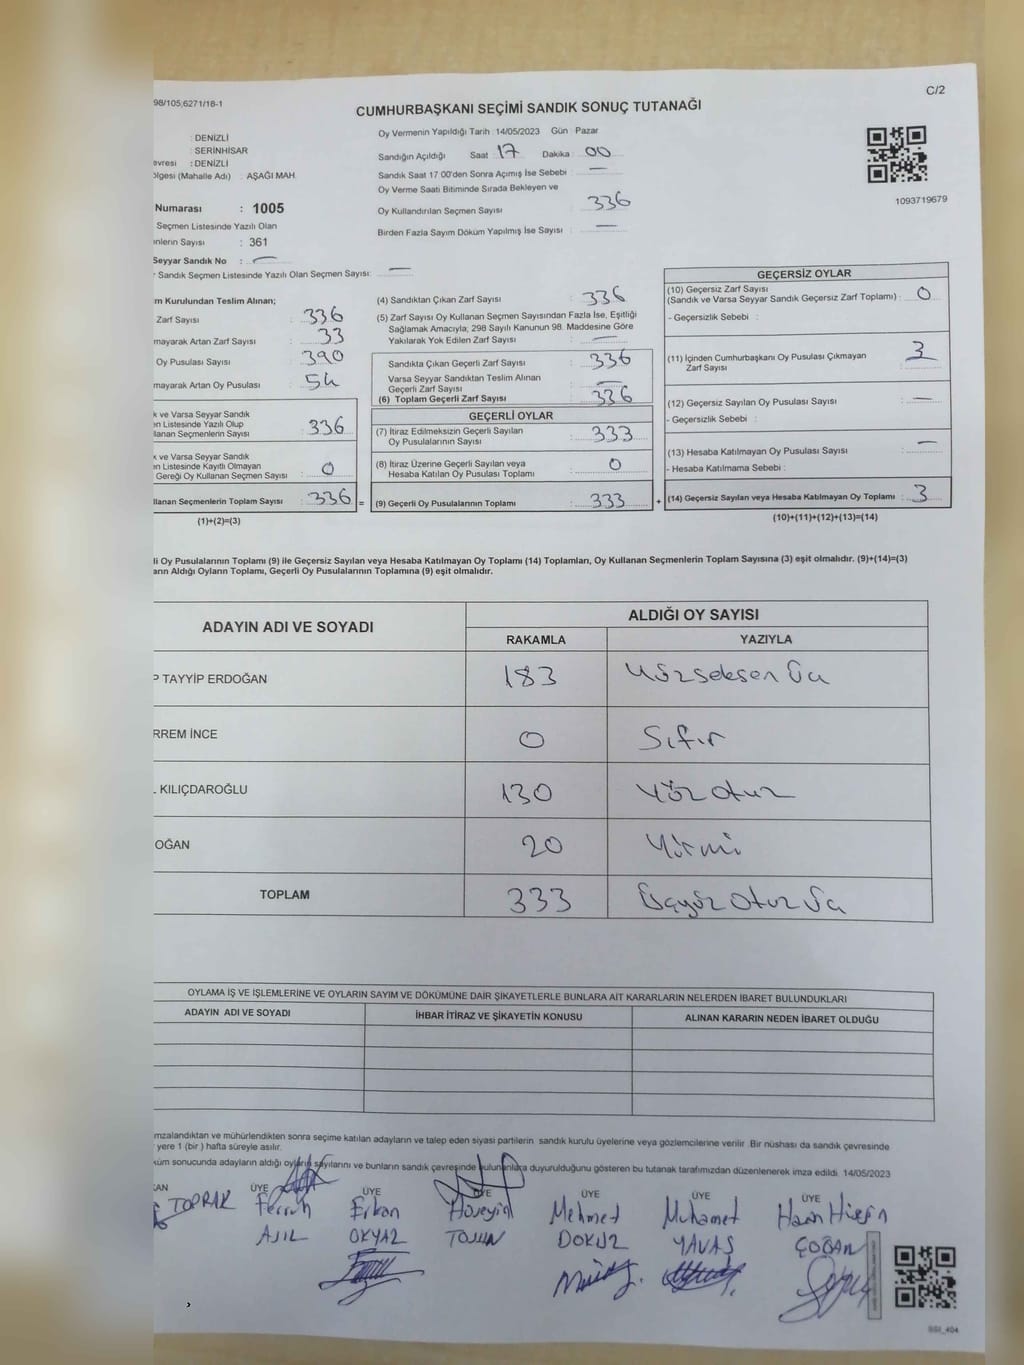 98/105,6271/18-1
C/2
CUMHURBAŞKANI SEÇİMİ SANDIK SONUÇ TUTANAĞI
: DENİZLİ
: SERİNHİSAR
evresi : DENİZLİ
ölgesi (Mahalle Adı) : AŞAĞI MAH.
Oy Vermenin Yapıldığı Tarih : 14/05/2023 Gün : Pazar
Sandığın Açıldığı Saat : 17 Dakika : 00
Sandık Saat 17 00'den Sonra Açımış İse Sebebi : —
Oy Verme Saati Bitiminde Sırada Bekleyen ve
Oy Kullandırılan Seçmen Sayısı : 336
Birden Fazla Sayım Döküm Yapılmış İse Sayısı : —
1093719679
Numarası : 1005
Seçmen Listesinde Yazılı Olan
enlerin Sayısı : 361
Seyyar Sandık No : —
r Sandık Seçmen Listesinde Yazılı Olan Seçmen Sayısı: —
m Kurulundan Teslim Alınan;
Zarf Sayısı : 336
mayarak Artan Zarf Sayısı : 33
Oy Pusulası Sayısı : 390
mayarak Artan Oy Pusulası : 54
k ve Varsa Seyyar Sandık
en Listesinde Yazılı Olup
llanan Seçmenlerin Sayısı : 336
k ve Varsa Seyyar Sandık
en Listesinde Kayıtlı Olmayan
Gereği Oy Kullanan Seçmen Sayısı : 0
llanan Seçmenlerin Toplam Sayısı : 336 =
(1)+(2)=(3)
(4) Sandıktan Çıkan Zarf Sayısı : 336
(5) Zarf Sayısı Oy Kullanan Seçmen Sayısından Fazla İse, Eşitliği
Sağlamak Amacıyla; 298 Sayılı Kanunun 98. Maddesine Göre
Yakılarak Yok Edilen Zarf Sayısı : —
Sandıkta Çıkan Geçerli Zarf Sayısı : 336
Varsa Seyyar Sandıktan Teslim Alınan
Geçerli Zarf Sayısı : —
(6) Toplam Geçerli Zarf Sayısı : 336
GEÇERLİ OYLAR
(7) İtiraz Edilmeksizin Geçerli Sayılan
Oy Pusulalarının Sayısı : 333
(8) İtiraz Üzerine Geçerli Sayılan veya
Hesaba Katılan Oy Pusulası Toplamı : 0
(9) Geçerli Oy Pusulalarının Toplamı : 333 +
GEÇERSİZ OYLAR
(10) Geçersiz Zarf Sayısı
(Sandık ve Varsa Seyyar Sandık Geçersiz Zarf Toplamı) : 0
- Geçersizlik Sebebi :
(11) İçinden Cumhurbaşkanı Oy Pusulası Çıkmayan
Zarf Sayısı : 3
(12) Geçersiz Sayılan Oy Pusulası Sayısı : —
- Geçersizlik Sebebi :
(13) Hesaba Katılmayan Oy Pusulası Sayısı : —
- Hesaba Katılmama Sebebi :
(14) Geçersiz Sayılan veya Hesaba Katılmayan Oy Toplamı : 3
(10)+(11)+(12)+(13)=(14)
li Oy Pusulalarının Toplamı (9) ile Geçersiz Sayılan veya Hesaba Katılmayan Oy Toplamı (14) Toplamları, Oy Kullanan Seçmenlerin Toplam Sayısına (3) eşit olmalıdır. (9)+(14)=(3)
arın Aldığı Oyların Toplamı, Geçerli Oy Pusulalarının Toplamına (9) eşit olmalıdır.
ADAYIN ADI VE SOYADI ALDIĞI OY SAYISI
RAKAMLA YAZIYLA
P TAYYİP ERDOĞAN 183 Yüzseksen Üç
RREM İNCE 0 Sıfır
. KILIÇDAROĞLU 130 Yüz otuz
OĞAN 20 Yirmi
TOPLAM 333 Üçyüz otuz Üç
OYLAMA İŞ VE İŞLEMLERİNE VE OYLARIN SAYIM VE DÖKÜMÜNE DAİR ŞİKAYETLERLE BUNLARA AİT KARARLARIN NELERDEN İBARET BULUNDUKLARI
ADAYIN ADI VE SOYADI İHBAR İTİRAZ VE ŞİKAYETİN KONUSU ALINAN KARARIN NEDEN İBARET OLDUĞU
mzalandıktan ve mühürlendikten sonra seçime katılan adayların ve talep eden siyasi partilerin sandık kurulu üyelerine veya gözlemcilerine verilir. Bir nüshası da sandık çevresinde
yere 1 (bir) hafta süreyle asılır.
küm sonucunda adayların aldığı oyların sayılarını ve bunların sandık çevresinde bulunanlara duyurulduğunu gösteren bu tutanak tarafımızdan düzenlenerek imza edildi. 14/05/2023
KAN ÜYE ÜYE ÜYE ÜYE ÜYE ÜYE
TOPRAK Ferruh Erkan Hüseyin Mehmet Muhamet Hasan Hüseyin
OKYAZ TOSUN DOKUZ YAVAŞ ÇOBAN